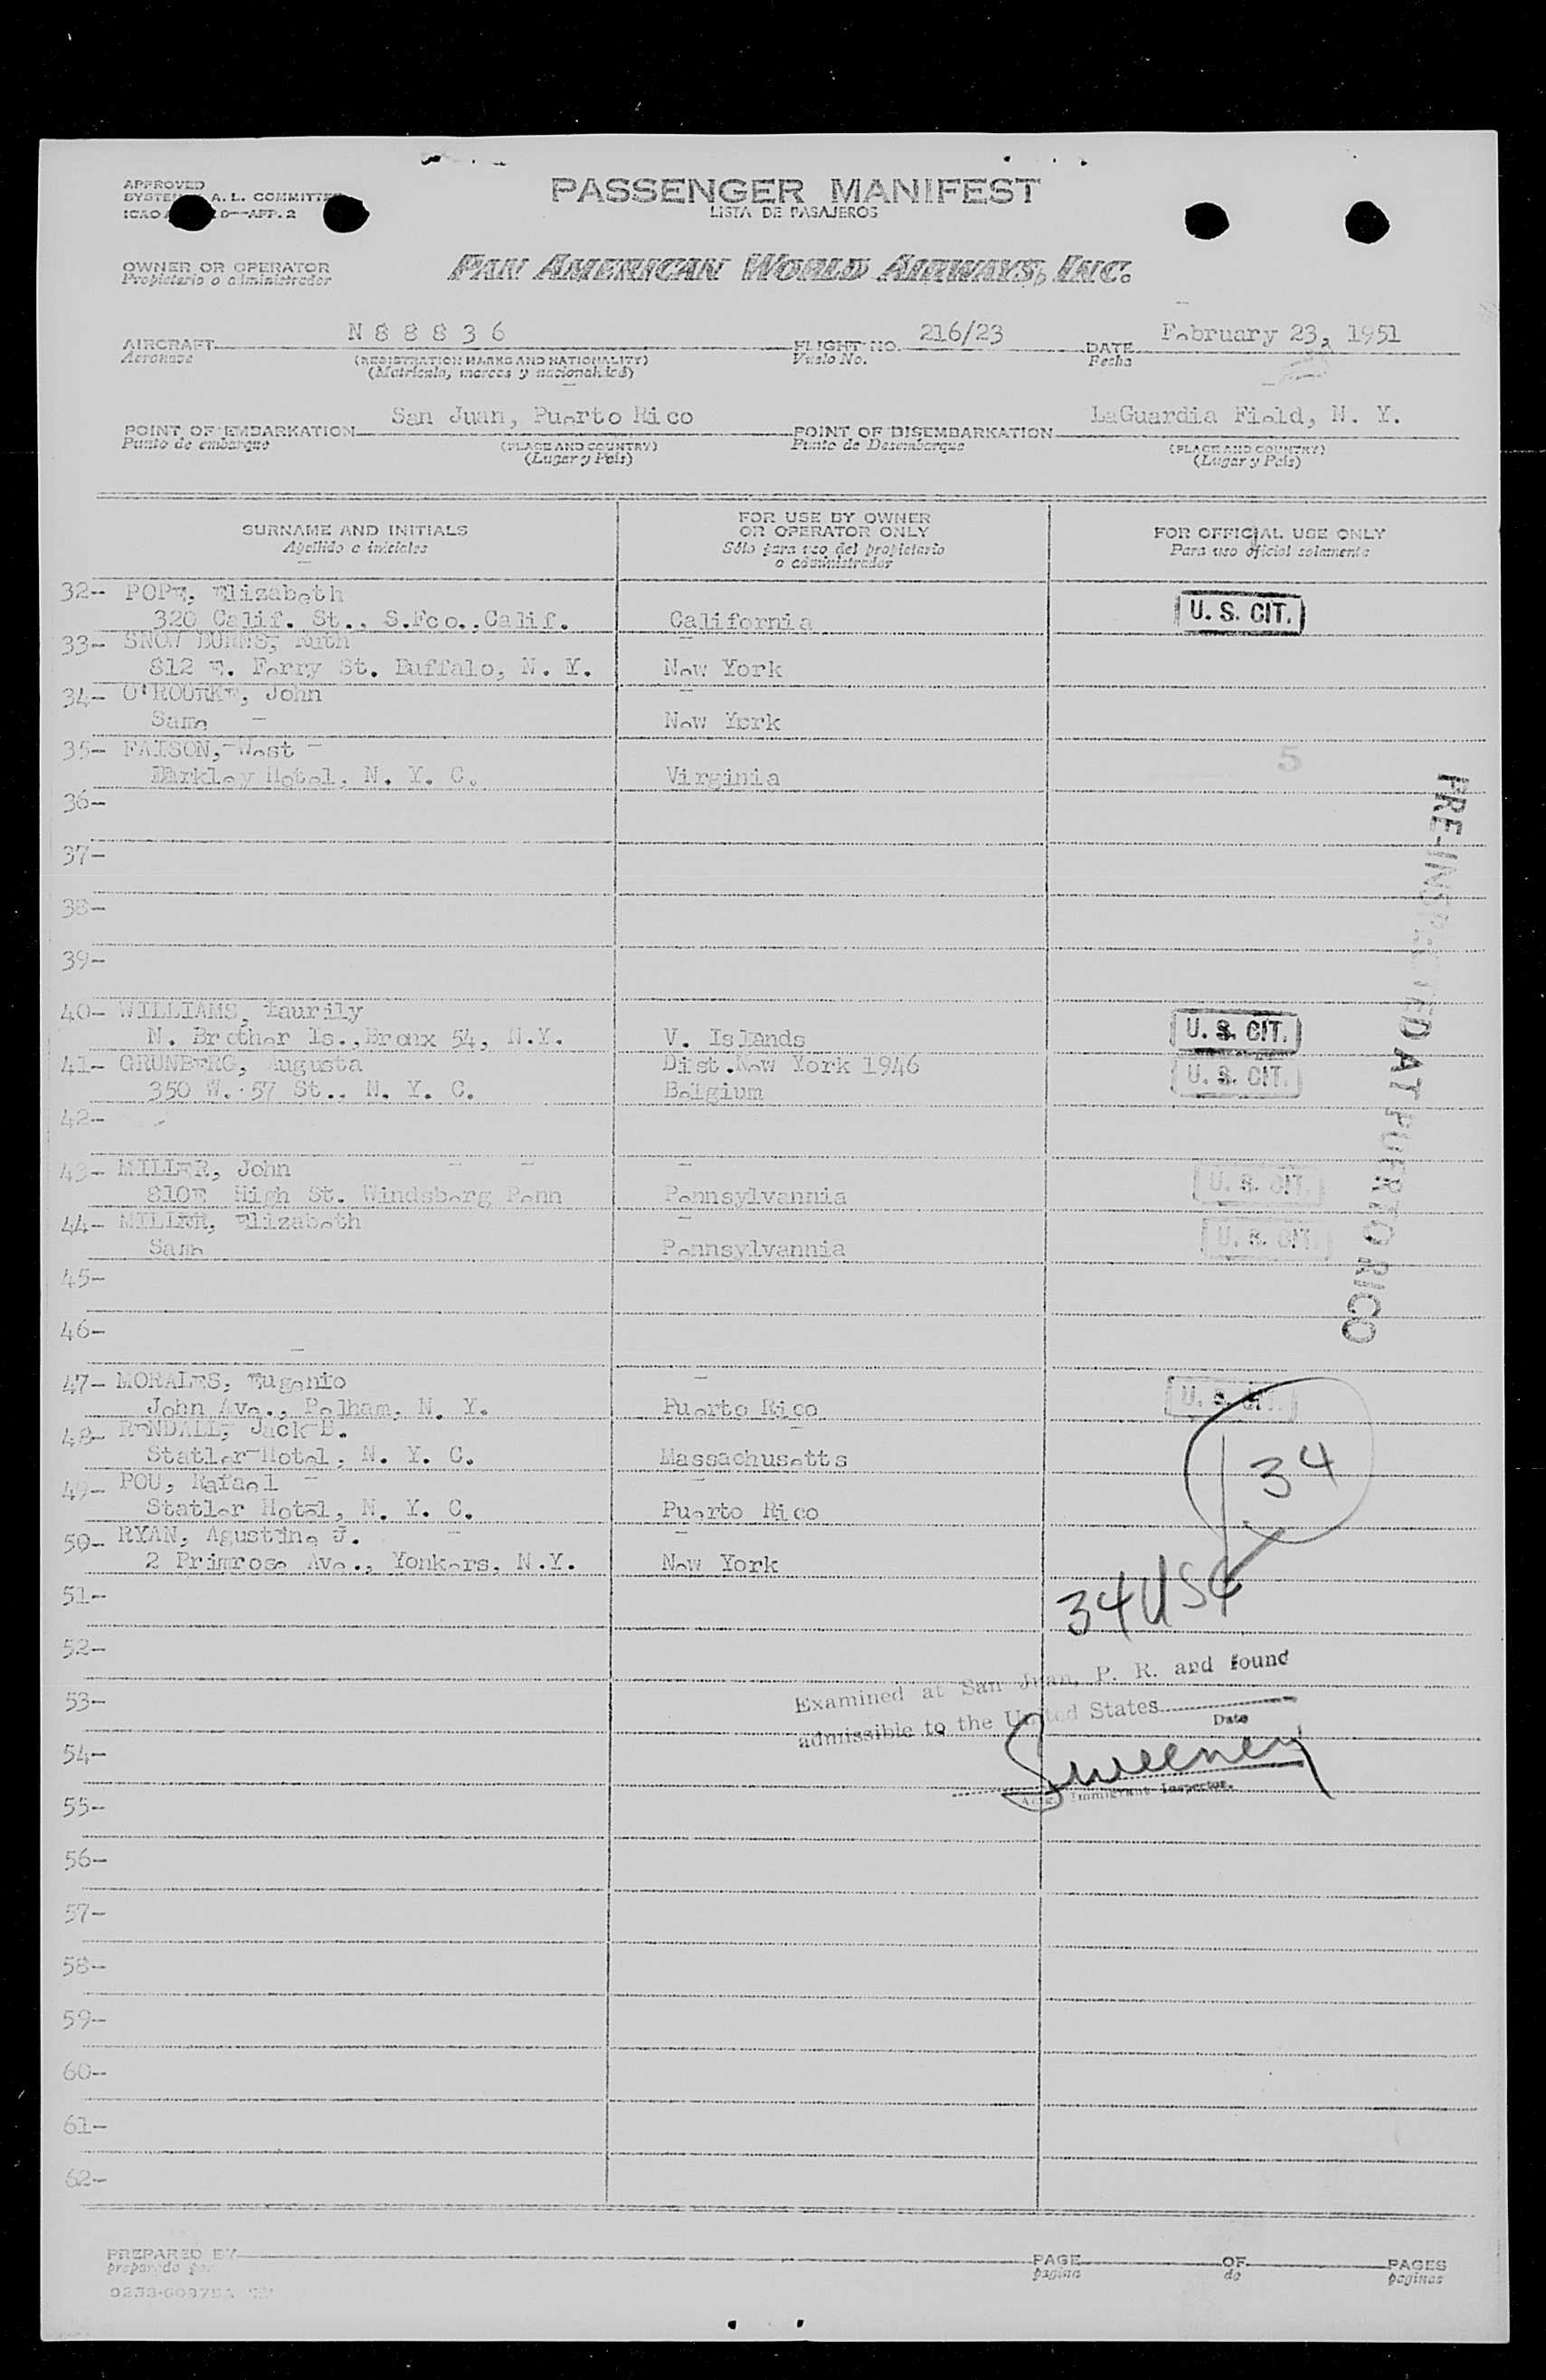 APPROVED
SYSTE A. L. COMMITTE
ICAO 9—APP. 2
PASSENGER MANIFEST
LISTA DE PASAJEROS
OWNER OR OPERATOR
Propietario o administrador
PAN AMERICAN WORLD AIRWAYS, INC.
AIRCRAFT N 8 8 8 3 6 FLIGHT NO. 216/23 DATE February 23, 1951
Aeronave (REGISTRATION MARKS AND NATIONALITY) Vuelo No. Fecha
(Matrícula, marcas y nacionalidad)
POINT OF EMBARKATION San Juan, Puerto Rico POINT OF DISEMBARKATION LaGuardia Field, N. Y.
Punto de embarque (PLACE AND COUNTRY) Punto de Desembarque (PLACE AND COUNTRY)
(Lugar y País) (Lugar y País)
SURNAME AND INITIALS FOR USE BY OWNER OR OPERATOR ONLY FOR OFFICIAL USE ONLY
Apellido e iniciales Sólo para uso del propietario o administrador Para uso oficial solamente
32- POPE, Elizabeth
320 Calif. St., S.Fco., Calif. California U. S. CIT.
33- SNOW BURNS, Ruth
812 E. Ferry St. Buffalo, N. Y. New York
34- O'ROURKE, John
Same New York
35- FAISON, West 5
Barkley Hotel, N. Y. C. Virginia
36-
37-
38-
39-
40- WILLIAMS, Laurily
N. Brother Is., Bronx 54, N.Y. V. Islands U. S. CIT.
41- GRUNBERG, Augusta Dist. New York 1946 U. S. CIT.
350 W. 57 St., N. Y. C. Belgium
42-
43- MILLER, John
810E High St. Windsberg Penn Pennsylvannia U. S. CIT.
44- MILLER, Elizabeth U. S. CIT.
Same Pennsylvannia
45-
46-
PRE-INSPECTED AT PUERTO RICO
47- MORALES, Eugenio
John Ave., Pelham, N. Y. Puerto Rico U. S. CIT.
48- RENDALL, Jack B.
Statler Hotel, N. Y. C. Massachusetts 34
49- POU, Rafael
Statler Hotel, N. Y. C. Puerto Rico
50- RYAN, Agustine J.
2 Primrose Ave., Yonkers, N.Y. New York
51- 34 USC
52-
Examined at San Juan, P. R. and found
53-
admissible to the United States
Date
54-
Sweeney
Actg. Immigrant Inspector.
55-
56-
57-
58-
59-
60-
61-
62-
PREPARED BY PAGE OF PAGES
preparado por página de páginas